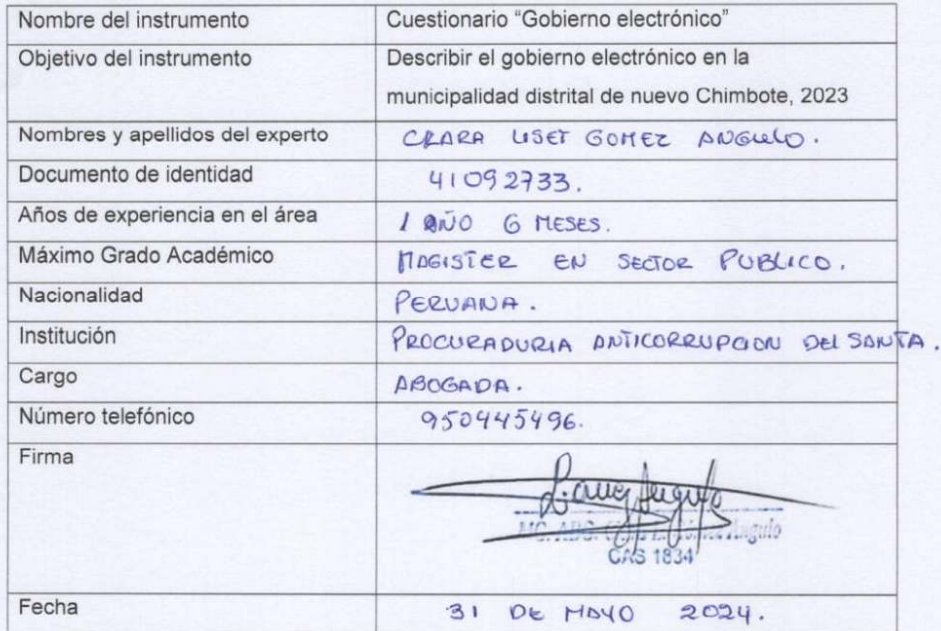 Nombre del instrumento Cuestionario “Gobierno electrónico”
Objetivo del instrumento Describir el gobierno electrónico en la
municipalidad distrital de nuevo Chimbote, 2023
Nombres y apellidos del experto CLARA LISET GOMEZ ANGULO.
Documento de identidad 41092733.
Años de experiencia en el área 1 AÑO 6 MESES.
Máximo Grado Académico MAGISTER EN SECTOR PUBLICO.
Nacionalidad PERUANA.
Institución PROCURADURIA ANTICORRUPCION DEL SANTA.
Cargo ABOGADA.
Número telefónico 950445496.
Firma
MG. ABG. Angulo
CAS 1834
Fecha 31 DE MAYO 2024.